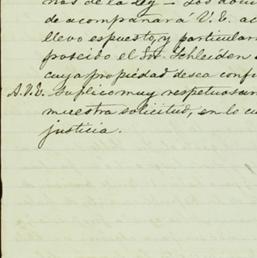 mas de la ley - Los docu
de acompañar á V.E. ac
llevo espuesto, y particular
poseido el Sor. Schleiden
cuya propiedad desea conf
A.V.E. Suplico muy respetuosam
nuestra solicitud, en lo cu
justicia.